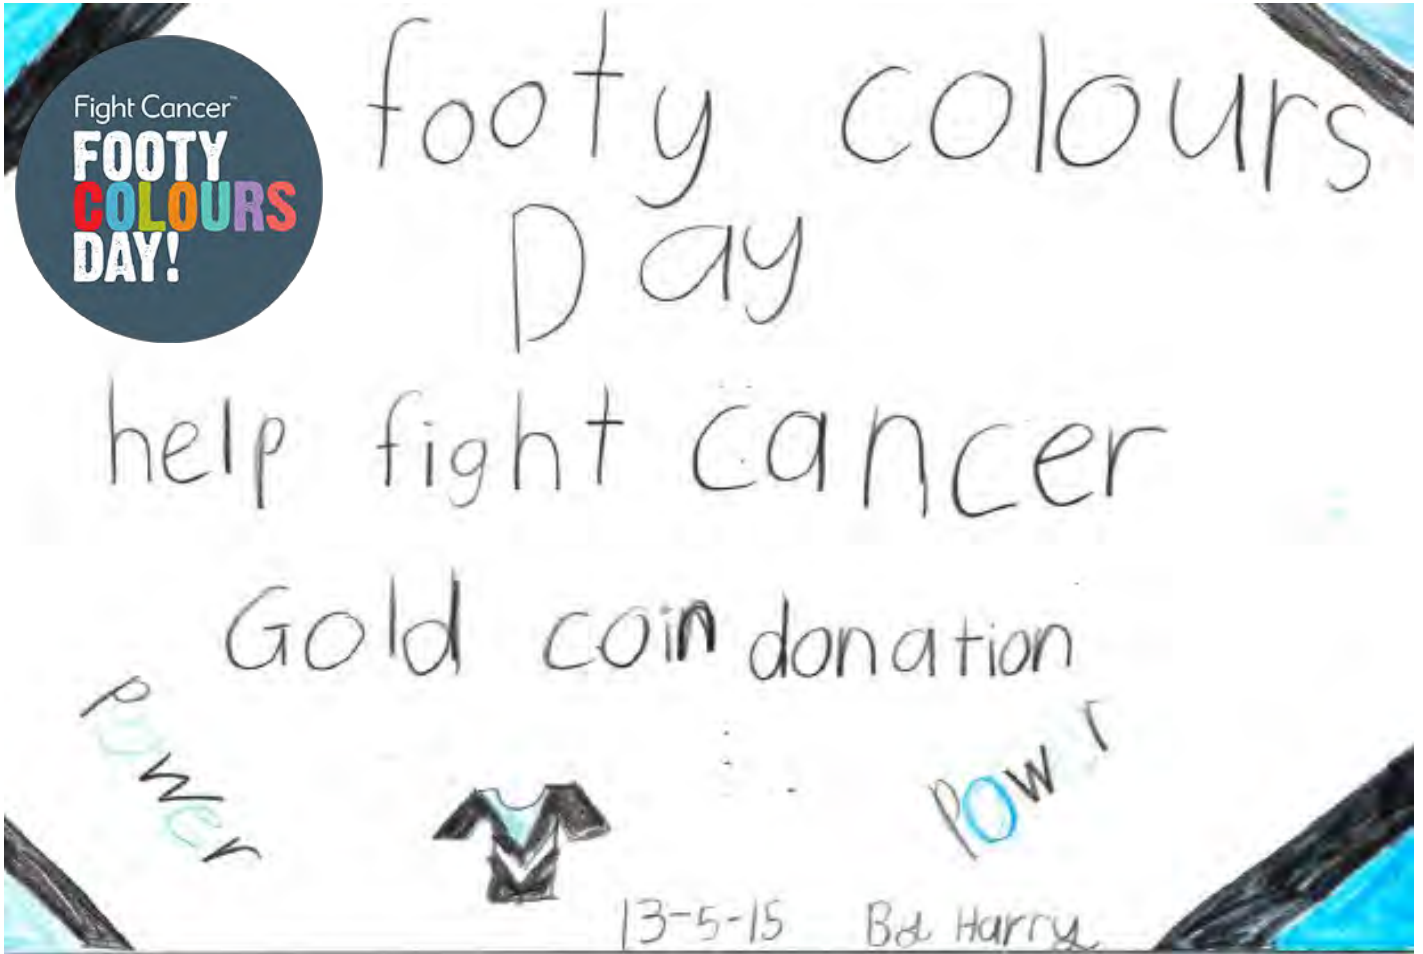 Fight Cancer™
FOOTY
COLOURS
DAY!
footy colours
Day
help fight cancer
Gold coin donation
power
power
13-5-15 Harry